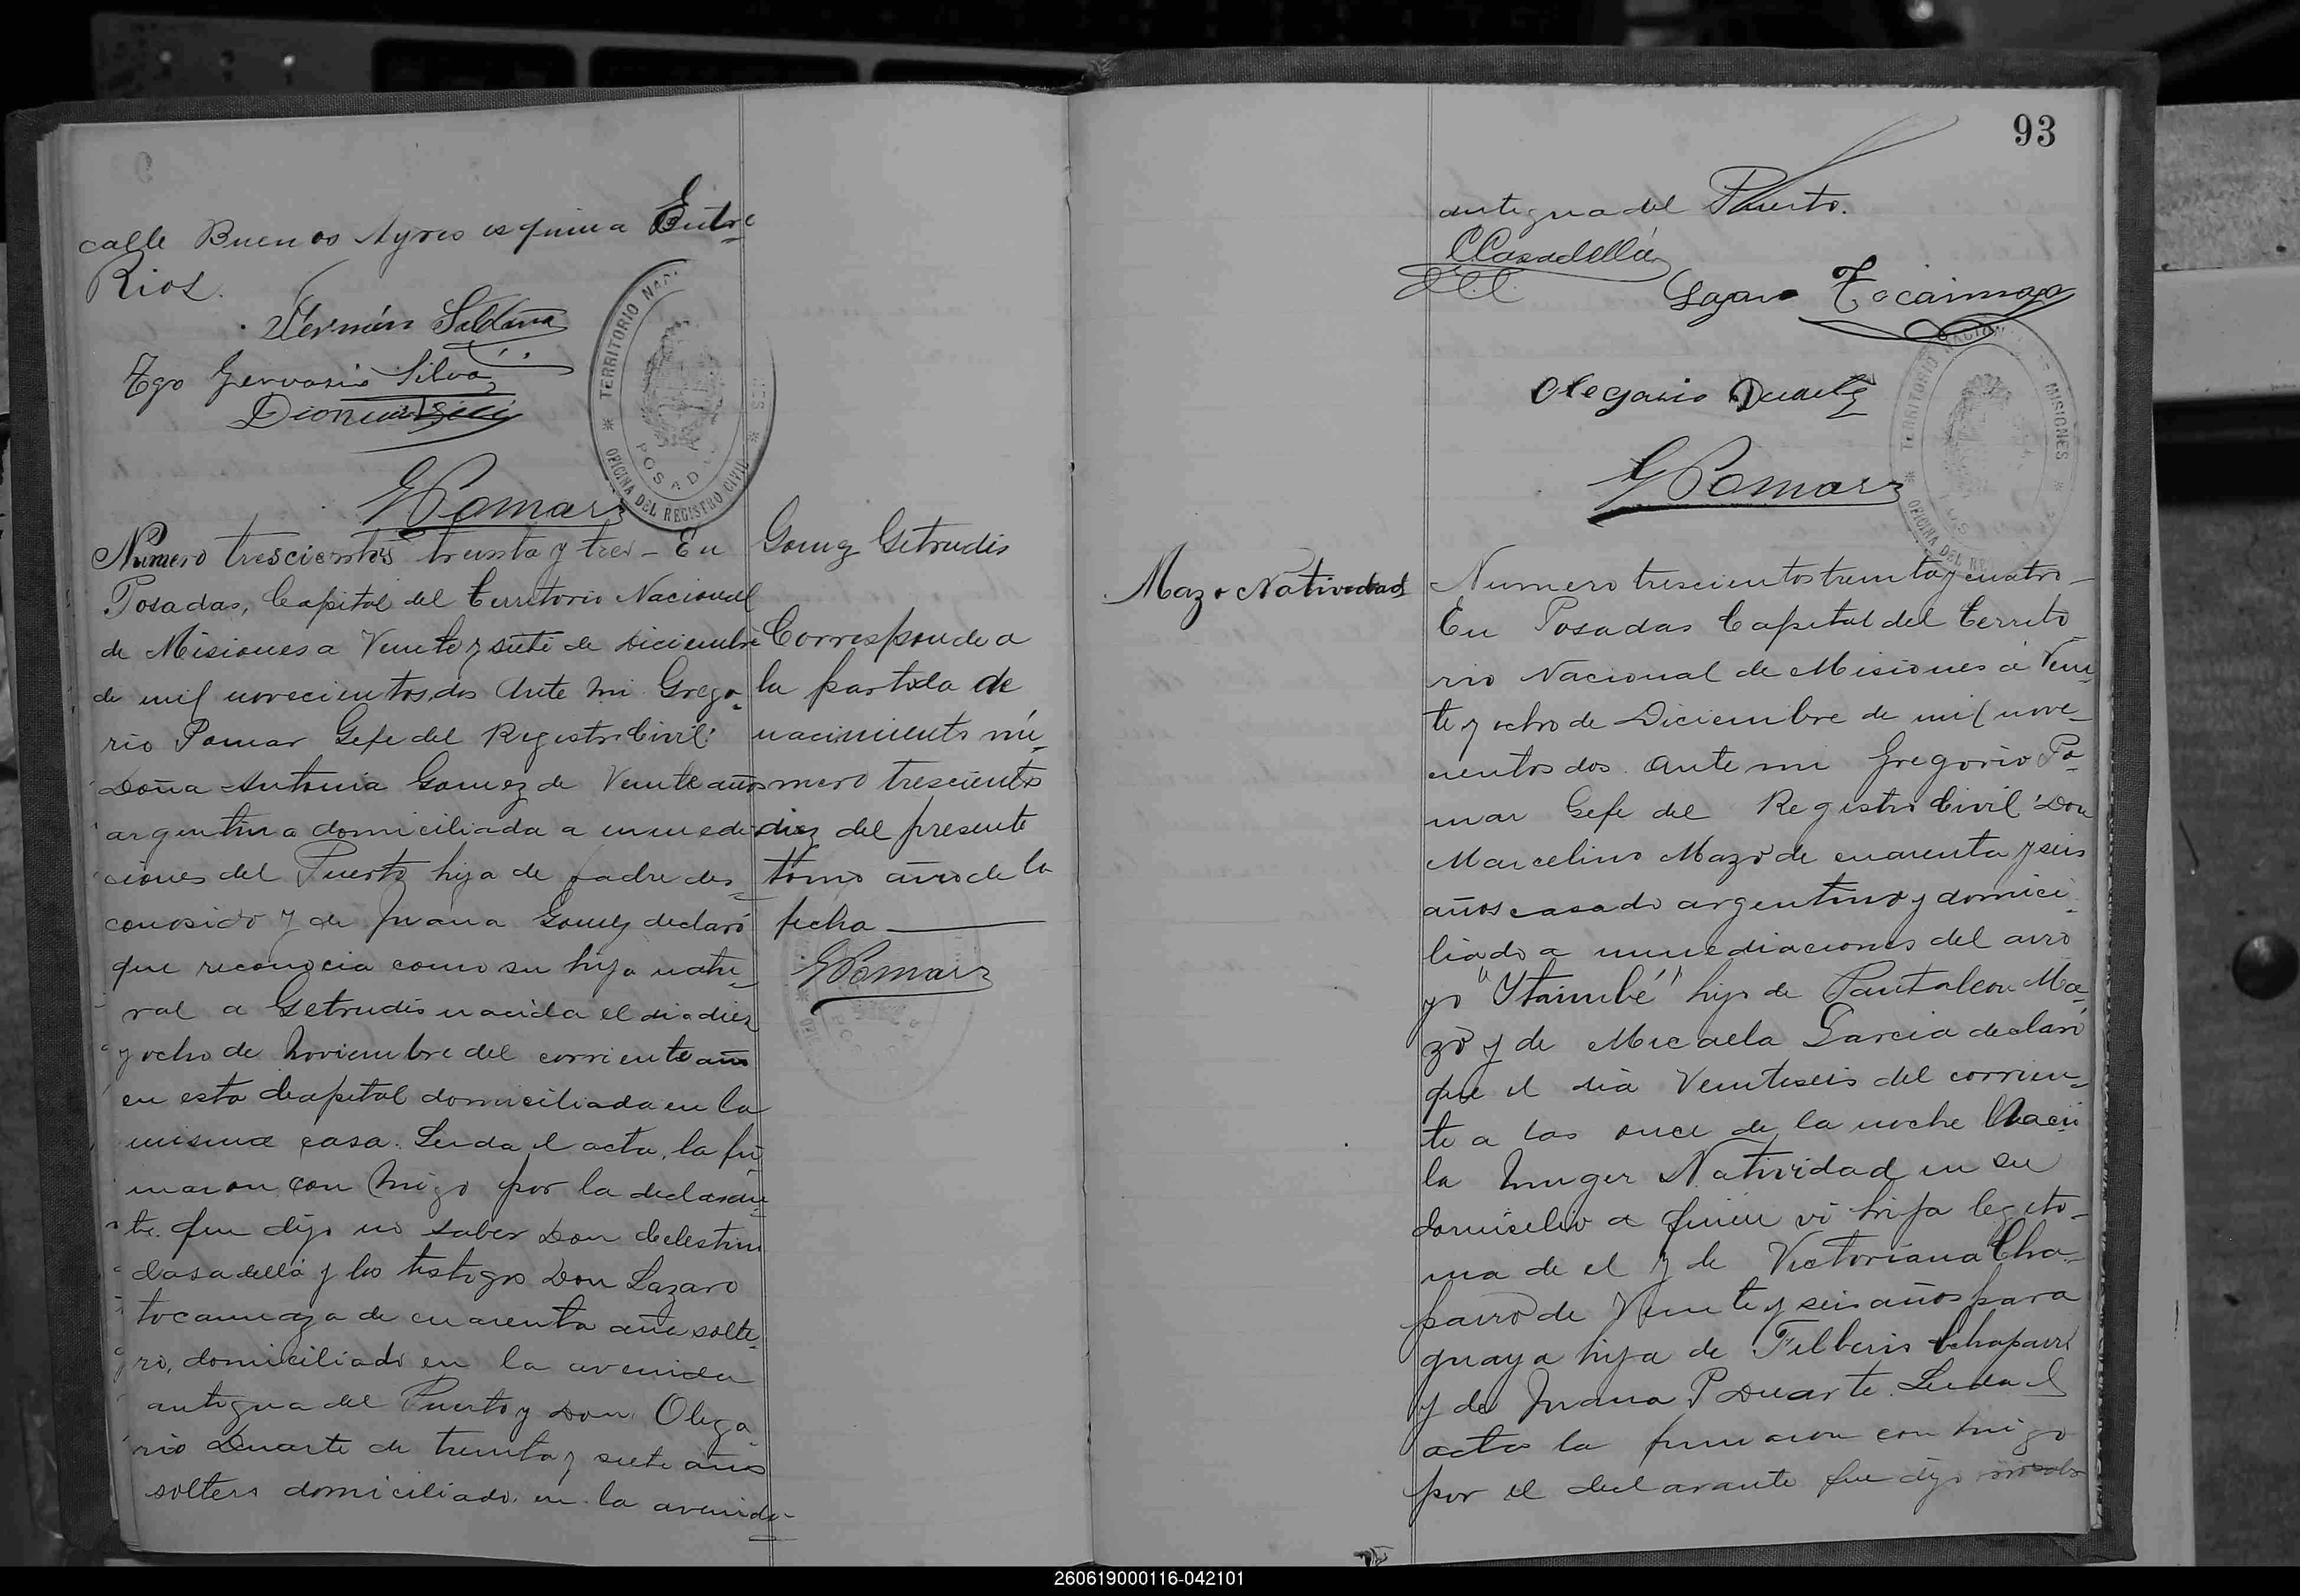 calle Buenos Ayres esquina Entre
Rios.
Fermín Saldaña
Tgo Gervasio Silva
G Pomar
TERRITORIO NAC
POSAD
OFICINA DEL REGISTRO CIVIL
Numero trescientos treinta y tres - En
Posadas, Capital del Territorio Nacional
de Misiones a Veinte y siete de Diciembre
de mil novecientos dos Ante mi Grego-
rio Pomar Gefe del Registro Civil:
Doña Antonia Gomez de Veinte años
argentina domiciliada a inmedia
ciones del Puerto hija de padre des-
conosido y de Juana Gomez declaró
que reconocia como su hija natu-
ral a Getrudis nacida el dia diez
y ocho de Noviembre del corriente año
en esta Capital domiciliada en la
misma casa. Leida el acta, la fir-
maron con migo por la declaran-
te que dijo no saber Don Celestino
Casadellá y los testigos Don Lazaro
tocamaza de cuarenta años solte-
ro, domiciliado en la avenida
antigua del Puerto y Don Olega-
rio Duarte de treinta y siete años
soltero domiciliado en la avenida
Gomez Getrudis
Corresponde a
la partida de
nacimiento nú-
mero trescientos
diez del presente
tomo año de la
fecha
G Pomar
93
antigua del Puerto.
C Casadellá
Lazaro Tocaimaza
Olegario Duarte
G Pomar
TERRITORIO NACION MISIONES
OFICINA DEL RE
Mazo Natividad
Numero trescientos treinta y cuatro -
En Posadas Capital del Territo
rio Nacional de Misiones á Vein-
te y ocho de Diciembre de mil nove-
cientos dos. Ante mi Gregorio Po-
mar Gefe del Registro Civil: Don
Marcelino Mazo de cuarenta y seis
años casado argentino y domici-
liado a inmediaciones del arro
yo "Ytaimbé" hijo de Pantaleon Ma-
zo y de Micaela Garcia declaró
que el dia Veinteseis del corrien-
te a las once de la noche Nació
la muger Natividad en su
domicilio a quien ví hija legiti-
ma de el y de Victoriana Cha-
parro de Veinte y seis años para
guaya hija de Filberio Chaparro
y de Juana P Duarte. Leida el
acta la firmaron con migo
por el declarante que dijo no saber
260619000116-042101